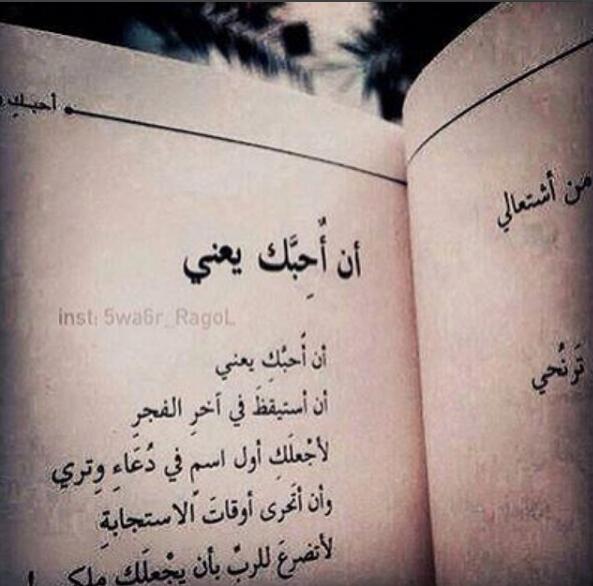 أحبك
أن أُحِبَّك يعني
inst: 5wa6r_RagoL
أن أُحبُّكِ يعني
أن أستيقظَ في آخرِ الفجرِ
لأجْعلَكِ أول اسمٍ في دُعَاءِ وِتري
وأن أتحرى أوقاتَ الاستجابةِ
لأتضرعَ للربِّ بأن يجْعلَكِ ملكي !
من أشتعالي
تَرنُّحي